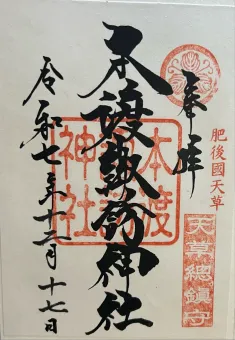 奉拝
肥後國天草
天草總鎮守
本渡諏訪神社
本渡
神社
令和七年十二月十七日